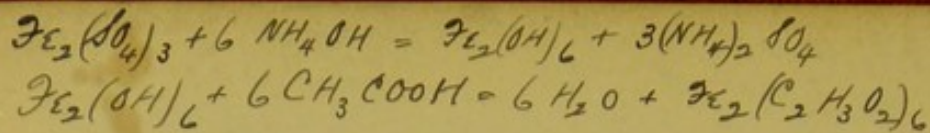 Fe₂(SO₄)₃ + 6 NH₄OH = Fe₂(OH)₆ + 3(NH₄)₂ SO₄
Fe₂(OH)₆ + 6 CH₃COOH = 6 H₂O + Fe₂(C₂H₃O₂)₆